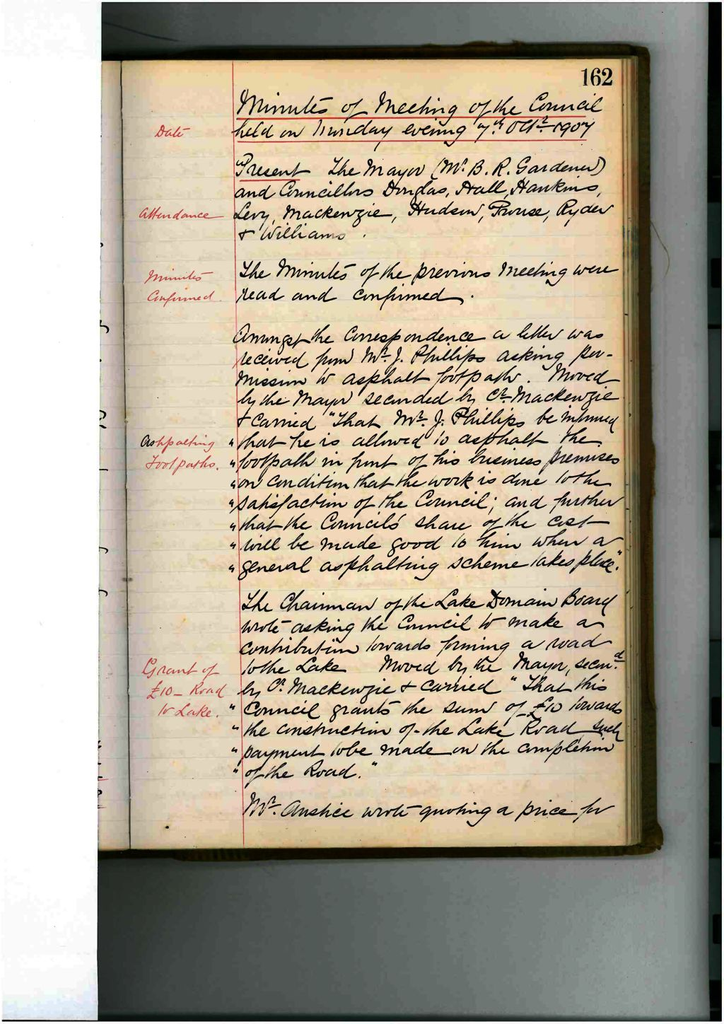 162
Minutes of Meeting of the Council
held on Monday evening 7th Oct. 1907
Date
Present The Mayor (Mr. B. R. Gardener)
and Councillors Douglas, Hall, Hawkins,
Attendance
Levy, Mackenzie, Hudson, Prouse, Ryder
& Williams.
Minutes
Confirmed
The Minutes of the previous Meeting were
read and confirmed.
Amongst the Correspondence a letter was
received from Mr. J. Phillips asking per-
mission to asphalt footpath. Moved
by the Mayor seconded by Cr. Mackenzie
& Carried "That Mr. J. Phillips be informed
Ashpalting
Footpaths.
" that he is allowed to asphalt the
" footpath in front of his business premises
" on condition that the work is done to the
" satisfaction of the Council; and further
" that the Council's share of the cost
" will be made good to him when a
" general asphalting scheme takes place."
The Chairman of the Lake Domain Board
wrote asking the Council to make a
contribution towards forming a road
Grant of
£10 - Road
to Lake.
to the Lake Moved by the Mayor, secon.d
by Cr. Mackenzie & Carried "That this
" Council grants the sum of £10 towards
" the construction of the Lake Road such
" payment to be made on the completion
" of the Road."
Mr. Anstice wrote quoting a price for